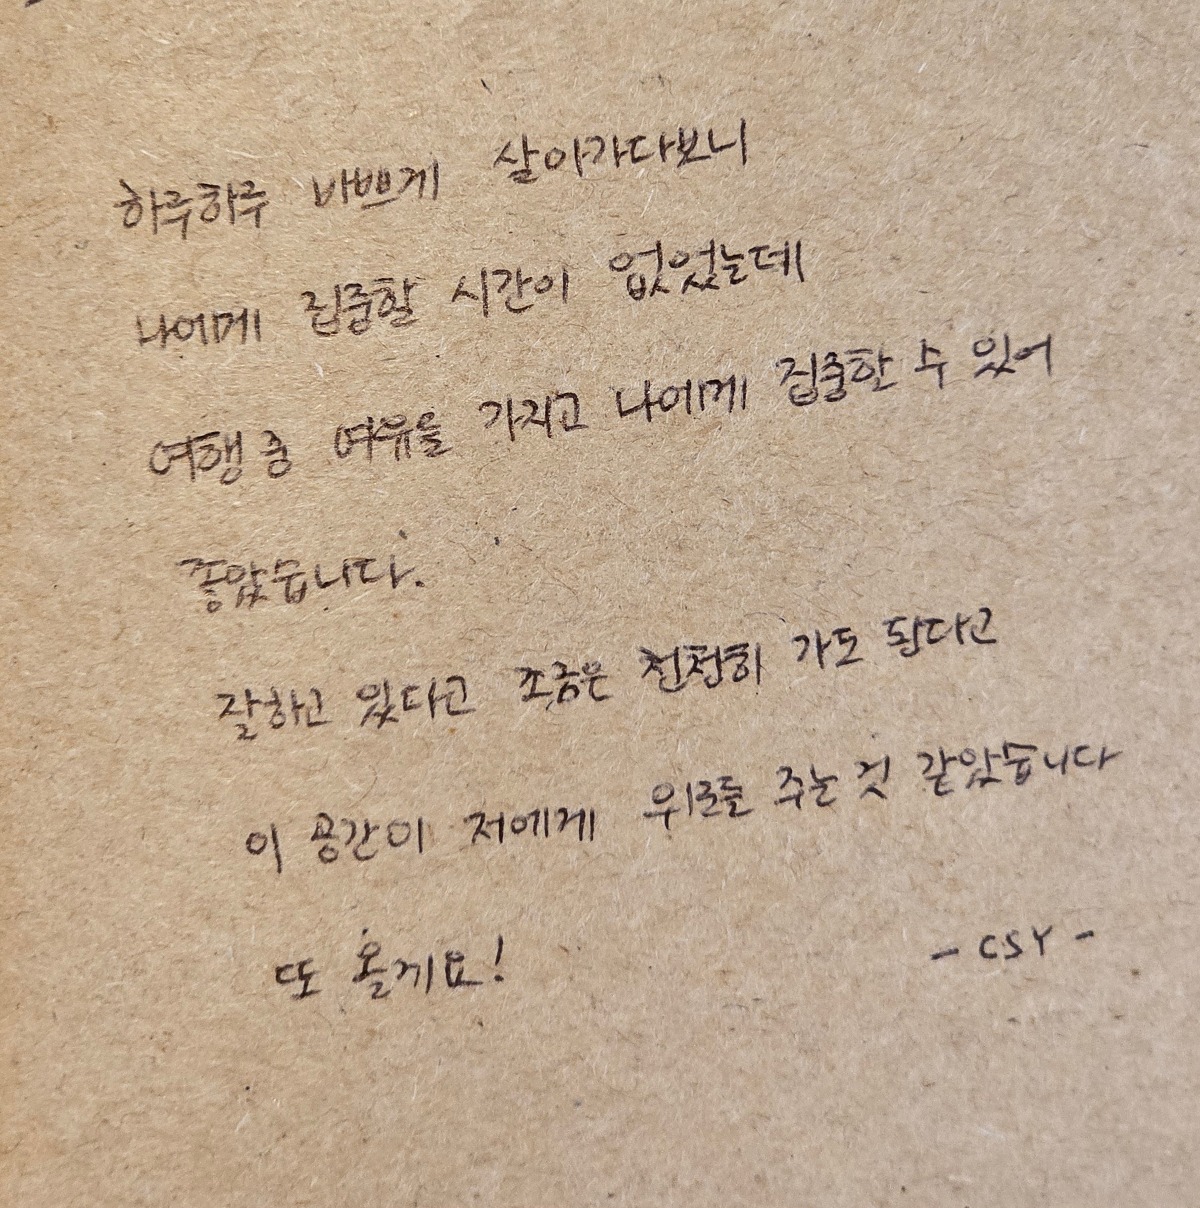 하루하루 바쁘게 살아가다보니
나에게 집중할 시간이 없었는데
여행 중 여유를 가지고 나에게 집중할 수 있어
좋았습니다.
잘하고 있다고 조금은 천천히 가도 된다고
이 공간이 저에게 위로를 주는 것 같았습니다
또 올게요! - CSY -